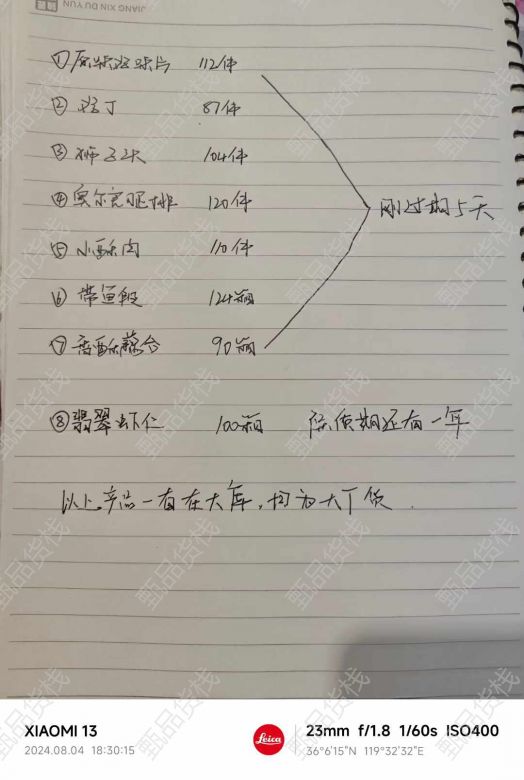 JIANG XIN DU YUN
①原味鸡味片 112件
② 鸡丁 87件
③ 狮子头 104件
④奥尔良腿排 120件
⑤ 小酥肉 110件
刚过期5天
⑥ 带鱼段 124箱
⑦ 香酥藕合 90箱
⑧翡翠虾仁 100箱 保质期还有一年
以上产品一直在大库，均为大厂货.
XIAOMI 13
2024.08.04 18:30:15
Leica
23mm f/1.8 1/60s ISO400
36°6'15"N 119°32'32"E
甄品货栈